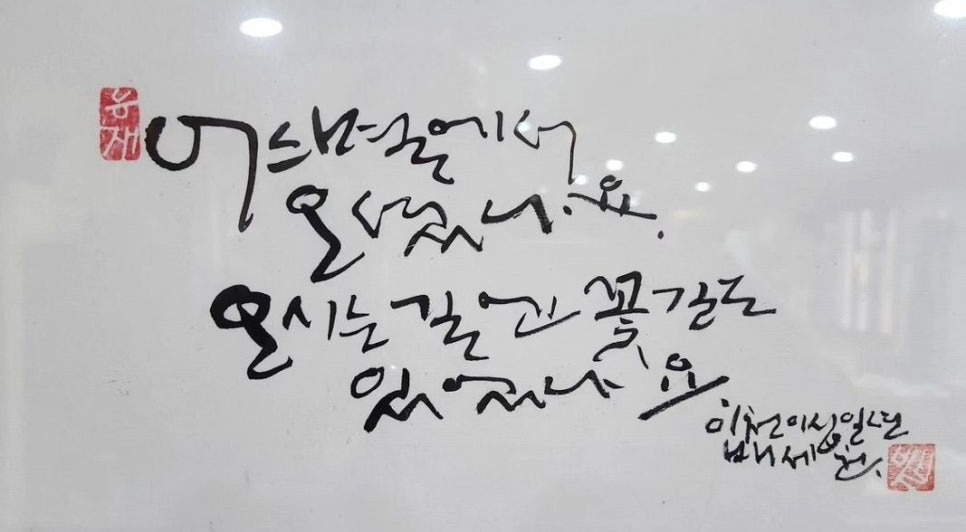 유재
어느별에서
오셨나요.
오시는 길엔 꽃길도
있었나요.
이천이십일년
배세원.